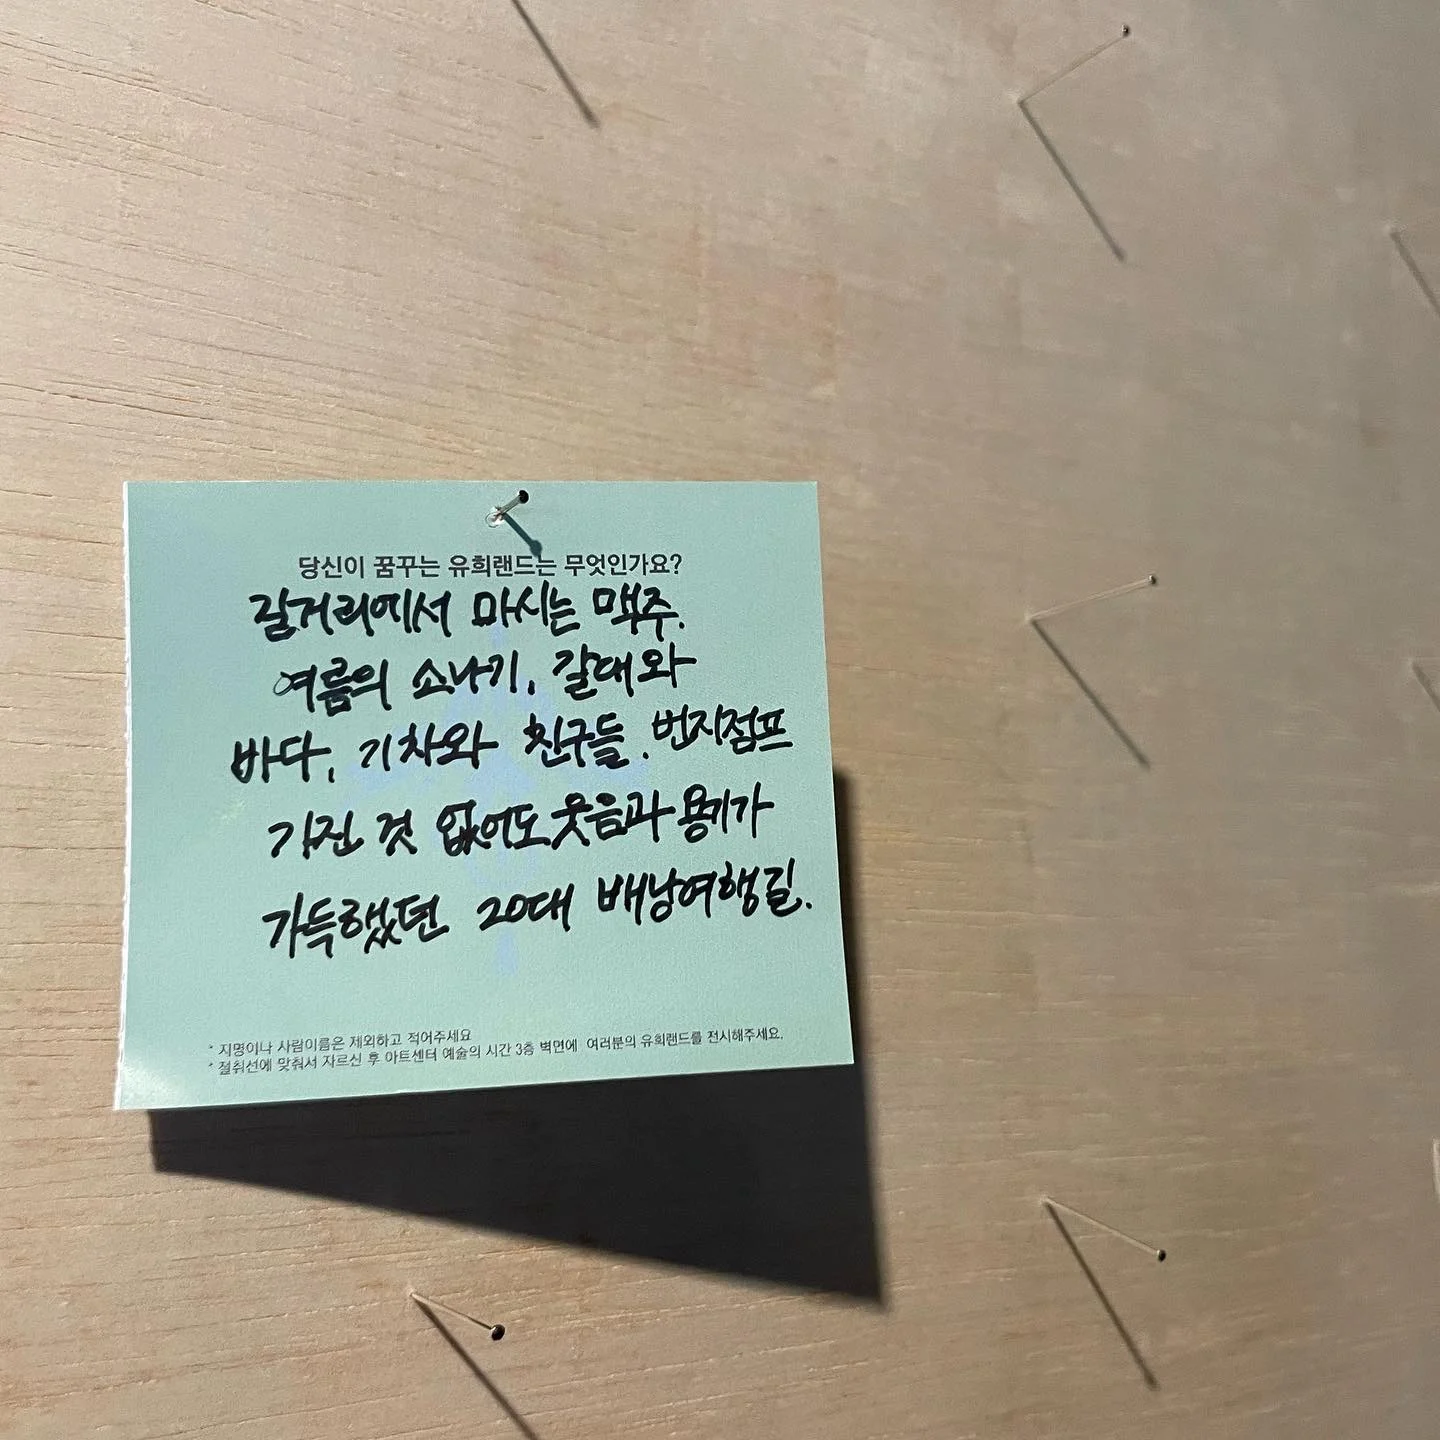 당신이 꿈꾸는 유희랜드는 무엇인가요?
길거리에서 마시는 맥주.
여름의 소나기, 갈대와
바다, 기차와 친구들. 번지점프
가진 것 없어도 웃음과 용기가
가득했던 20대 배낭여행길.
* 지명이나 사람이름은 제외하고 적어주세요
* 절취선에 맞춰서 자르신 후 아트센터 예술의 시간 3층 벽면에 여러분의 유희랜드를 전시해주세요.